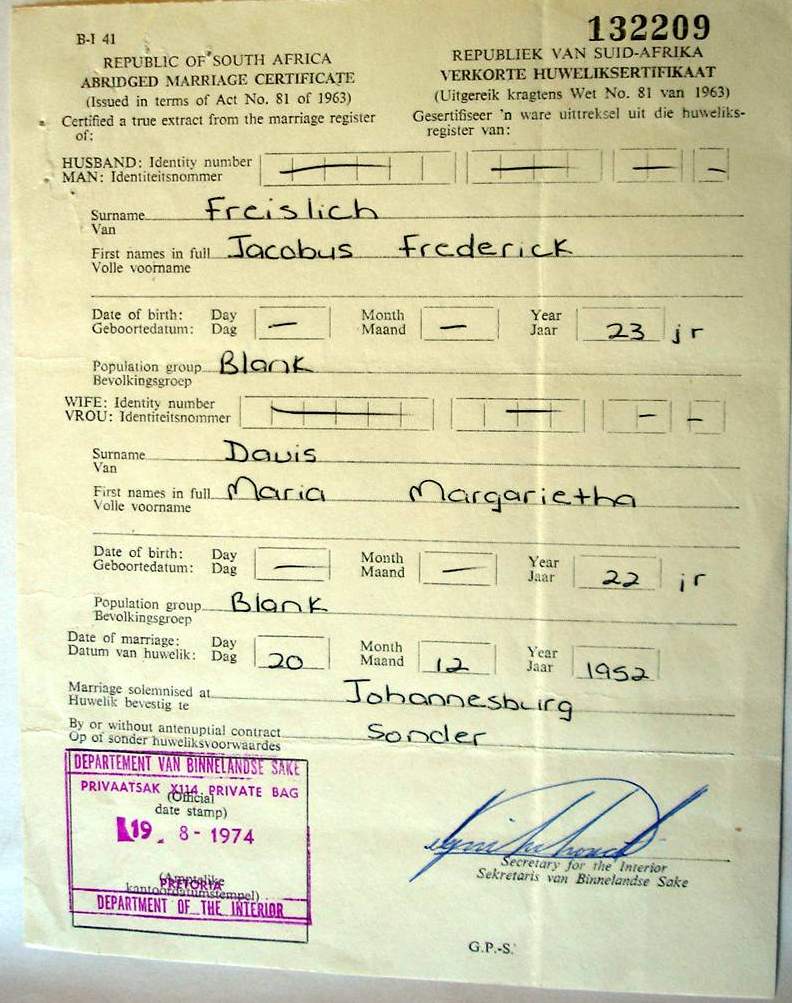 B-I 41
132209
REPUBLIC OF SOUTH AFRICA
ABRIDGED MARRIAGE CERTIFICATE
(Issued in terms of Act No. 81 of 1963)
Certified a true extract from the marriage register
of:
REPUBLIEK VAN SUID-AFRIKA
VERKORTE HUWELIKSERTIFIKAAT
(Uitgereik kragtens Wet No. 81 van 1963)
Gesertifiseer 'n ware uittreksel uit die huweliks-
register van:
HUSBAND: Identity number
MAN: Identiteitsnommer
Surname Freislich
Van
First names in full Jacobus Frederick
Volle voorname
Date of birth: Day — Month — Year 23 jr
Geboortedatum: Dag Maand Jaar
Population group Blank
Bevolkingsgroep
WIFE: Identity number
VROU: Identiteitsnommer
Surname Davis
Van
First names in full Maria Margarietha
Volle voorname
Date of birth: Day — Month — Year 22 jr
Geboortedatum: Dag Maand Jaar
Population group Blank
Bevolkingsgroep
Date of marriage: Day 20 Month 12 Year 1952
Datum van huwelik: Dag Maand Jaar
Marriage solemnised at Johannesburg
Huwelik bevestig te
By or without antenuptial contract Sonder
Op of sonder huweliksvoorwaardes
DEPARTEMENT VAN BINNELANDSE SAKE
PRIVAATSAK X114 PRIVATE BAG
(Official
date stamp)
19. 8-1974
(Amptelike
PRETORIA
kantoordatumstempel)
DEPARTMENT OF THE INTERIOR
Secretary for the Interior
Sekretaris van Binnelandse Sake
G.P.-S.